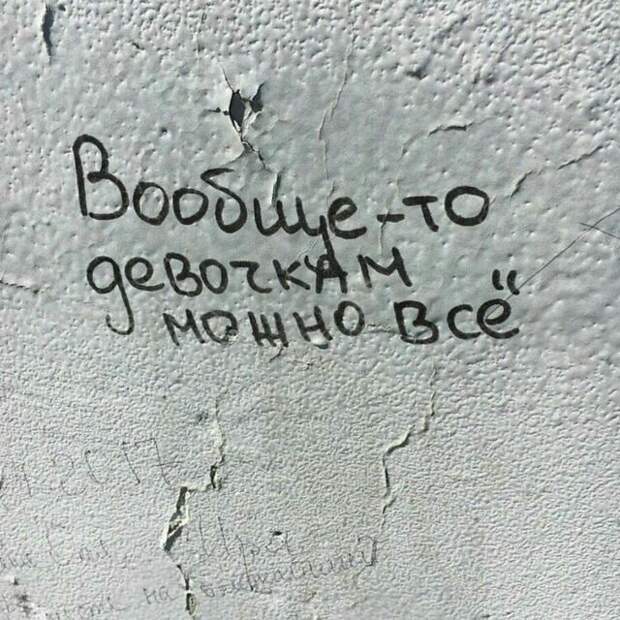 Вообще-то
девочкам
можно всё
2017
на